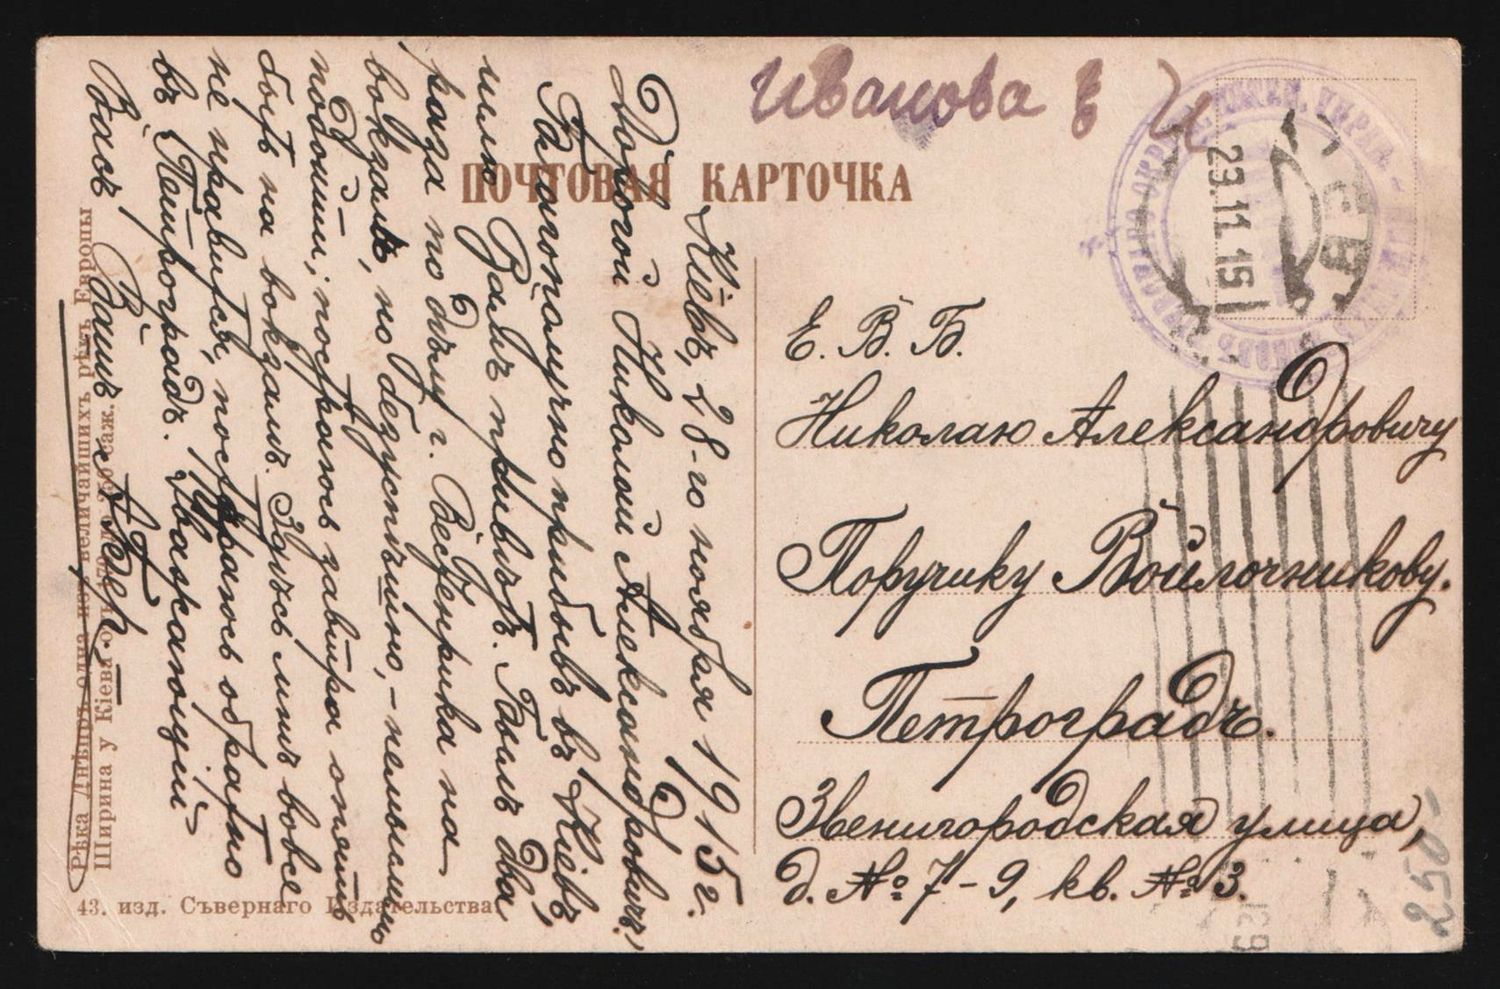 Иванова Е И
ПОЧТОВАЯ КАРТОЧКА
23.11.15
Кіевъ, 28-го ноября 1915 г.
Дорогой Николай Александровичъ,
Благополучно прибывъ въ Кіевъ,
шлю Вамъ привѣтъ. Былъ два
раза по дѣлу г. Вебенрика на
вокзалѣ, но безуспѣшно,
подошли; постараюсь завтра опять
быть на вокзалѣ. Здѣсь мнѣ вовсе
не нравится, постараюсь обратно
въ Петроградъ. Уважающій
Васъ Вашъ
Е. В. Б.
Николаю Александровичу
Поручику Войлочникову.
Петроградъ.
Звенигородская улица,
д. № 7-9, кв. № 3.
Рѣка Днѣпръ одна изъ величайшихъ рѣкъ Европы
Ширина у Кіева саж.
43. изд. Сѣвернаго Издательства
250-